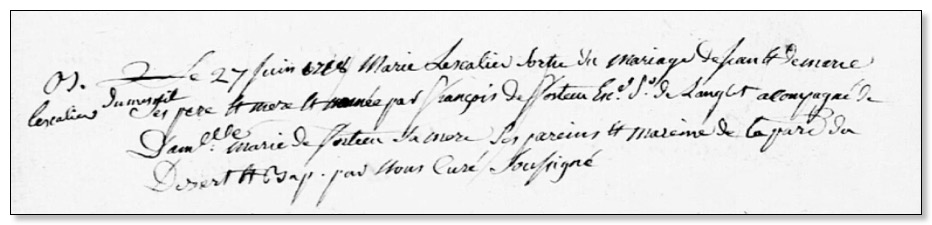 B. Le 27 Juin 1718 Marie Lescalier sortie du mariage de Jean et de marie
Lescalier dumesnil ses pere et mere et nomée par François de Sorteu Enc.r S.r de Langlet acompagné de
Dam.lle marie de Sorteu sa mere ses pareins et mareine de la par. du
Desert et Bap. par Nous Curé Soussigné